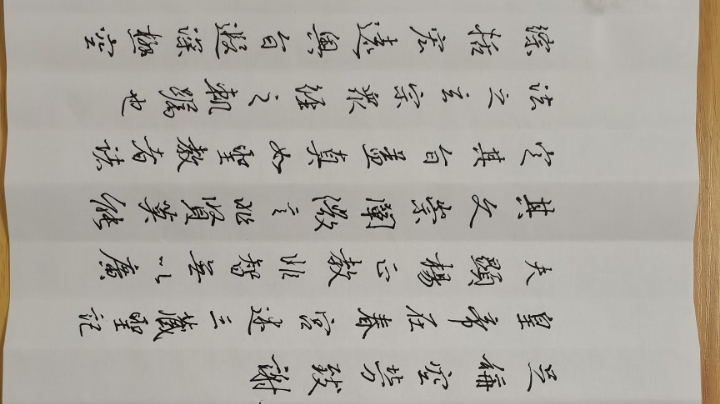 足稱空勞致謝
皇帝在春宮述三藏聖記
夫顯揚正教非智無以廣
其文崇闡微言非賢莫能
定其旨蓋真如聖教者諸
法之玄宗眾經之軌躅也
綜括宏遠奧旨遐深極空